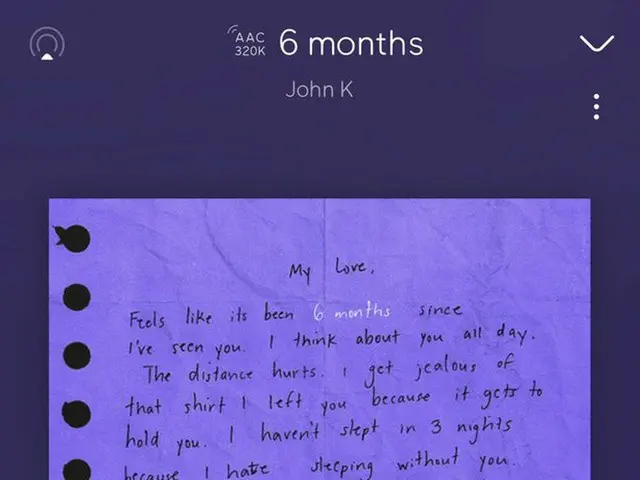 AAC
320K
6 months
John K
My Love,
Feels like its been 6 months since
I've seen you. I think about you all day.
The distance hurts. I get jealous of
that shirt I left you because it gets to
hold you. I haven't slept in 3 nights
because I hate sleeping without you.